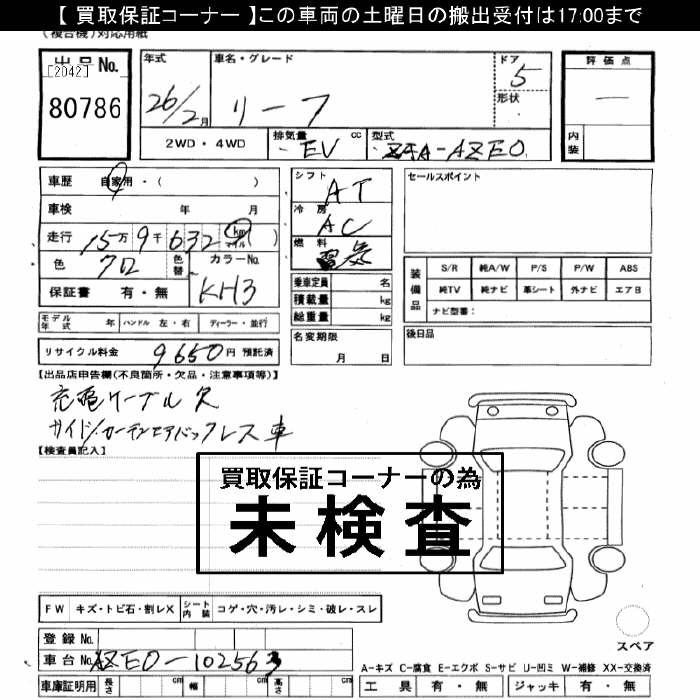 【 買取保証コーナー 】この車両の土曜日の搬出受付は17:00まで
(複合機)対応用紙
出品No.
[2042]
80786
年式
26/2月
車名・グレード
リーフ
ドア
5
形状
評価点
—
内装
2WD・4WD
排気量 EV cc
型式 ZAA-AZE0
車歴 自家用・( )
車検 年 月
走行 15万9千632 km マイル ( )
色 クロ 色替
カラーNo. KH3
保証書 有・無
シフト AT
冷房 AC
燃料 電気
乗車定員 名
積載量 kg
総重量 kg
セールスポイント
装備品
S/R 純A/W P/S P/W ABS
純TV 純ナビ 革シート 外ナビ エアB
ナビ型番:
モデル年式 年 ハンドル 左・右 ディーラー・並行
名変期限
月 日
後日品
リサイクル料金 9650円 預託済
【出品店申告欄(不良箇所・欠品・注意事項等)】
充電ケーブル欠
サイド/カーテンエアバックレス車
【検査員記入】
買取保証コーナーの為
未検査
FW キズ・トビ石・割レX シート内装 コゲ・穴・汚レ・シミ・破レ・スレ
登録No.
車台No. AZE0-102563
スペア
A-キズ C-腐食 E-エクボ S-サビ U-凹ミ W-補修 XX-交換済
車庫証明用 長さ cm 幅 cm 高さ cm
工具 有・無 ジャッキ 有・無